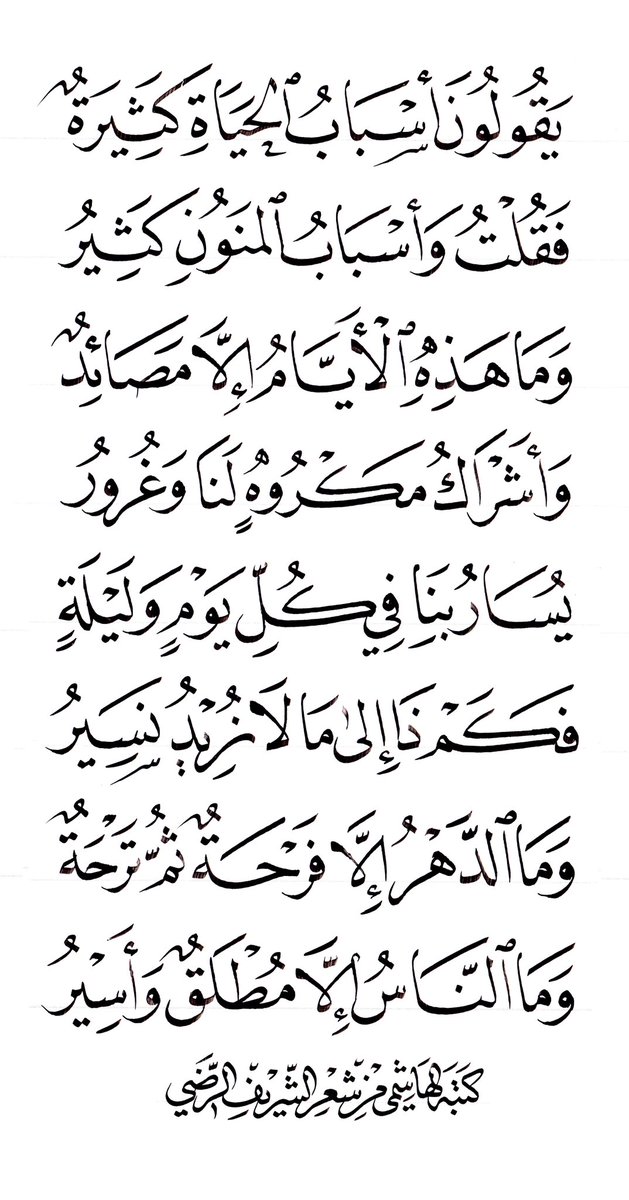 يَقُولُونَ أَسْبَابُ ٱلْحَيَاةِ كَثِيرَةٌ
فَقُلْتُ وَأَسْبَابُ ٱلمَنَوُنِ كَثِيرُ
وَمَا هَذِهِ ٱلْأَيَّامُ إِلَّا مَصَائِدٌ
وَأَشْرَاكُ مَكْرُوهٍ لَنَا وَغُرُورُ
يُسَارُ بِنَا فِي كُلِّ يَوْمٍ وَلَيْلَةٍ
فَكَمْ ذَا إِلىٰ مَا لَا نُرِيْدُ نَسِيرُ
وَمَا ٱلدَّهْرُ إِلَّا فَرْحَةٌ ثُمَّ تَرْحَةٌ
وَمَا ٱلنَّاسُ إِلَّا مُطْلَقٌ وَأَسِيْرُ
كَتَبَهُ الهَاشِمِي مِنْ شِعْرِ الشَّرِيْفِ الرَّضَي